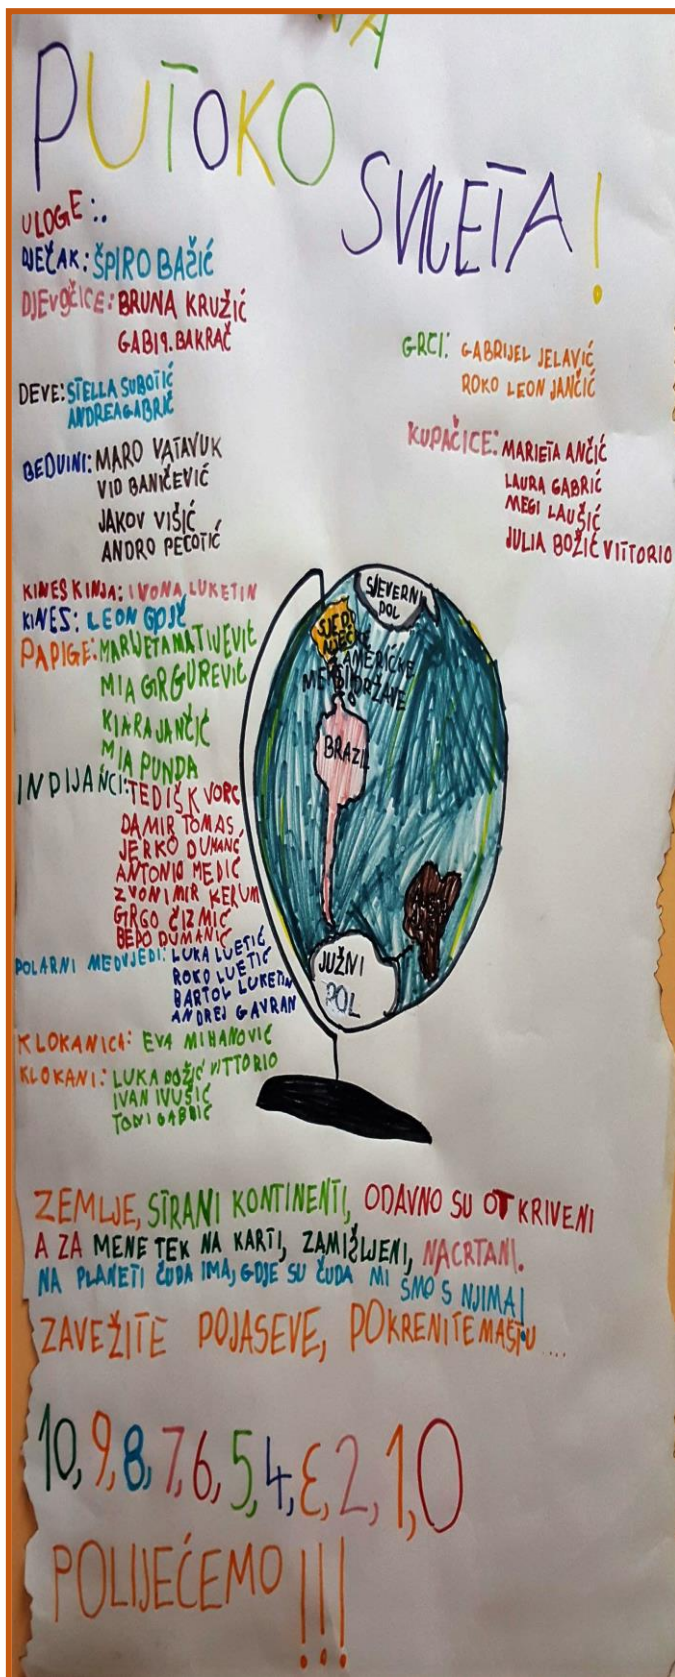 NA
PUTOKO
SVIJETA!
ULOGE:..
DJEČAK: ŠPIRO BAŽIĆ
DJEVOČICE: BRUNA KRUŽIĆ
GABI9.BAKRAČ
DEVE: STELLA SUBOTIĆ
ANDREA GABRIĆ
BEDUINI: MARO VATAVUK
VID BANIČEVIĆ
JAKOV VIŠIĆ
ANDRO PECOTIĆ
KINESKINJA: IVONA LUKETIN
KINES: LEON
PAPIGE: MARIJETA MATIJEVIĆ
MIA GRGUREVIĆ
KIARA JANČIĆ
MIA PUNDA
INDIJANCI: TEDI ŠKVORC
DAMIR TOMAS
JERKO DUMANČ
ANTONIO MEDIĆ
ZVONIMIR KERUM
GRGO ČIZMIĆ
BEPO DUMANIĆ
POLARNI MEDVJEDI: LUKA LUETIĆ
ROKO LUETIĆ
BARTOL LUKETIN
ANDREJ GAVRAN
KLOKANICA: EVA MIHANOVIĆ
KLOKANI: LUKA BOŽIĆ VITTORIO
IVAN IVUŠIĆ
TONI GABRIĆ
GRCI: GABRIJEL JELAVIĆ
ROKO LEON JANČIĆ
KUPAČICE: MARIETA ANČIĆ
LAURA GABRIĆ
MEGI LAUŠIĆ
JULIA BOŽIĆ VITTORIO
SJEVERNI
POL
AMERIČKE
DRŽAVE
BRAZIL
JUŽNI
POL
ZEMLJE, STRANI KONTINENTI, ODAVNO SU OTKRIVENI
A ZA MENE TEK NA KARTI, ZAMIŠLJENI, NACRTANI.
NA PLANETI ČUDA IMA, GDJE SU ČUDA MI SMO S NJIMA!
ZAVEŽITE POJASEVE, POKRENITE MAŠTU....
10, 9, 8, 7, 6, 5, 4, 3, 2, 1, 0
POLIJEĆEMO!!!